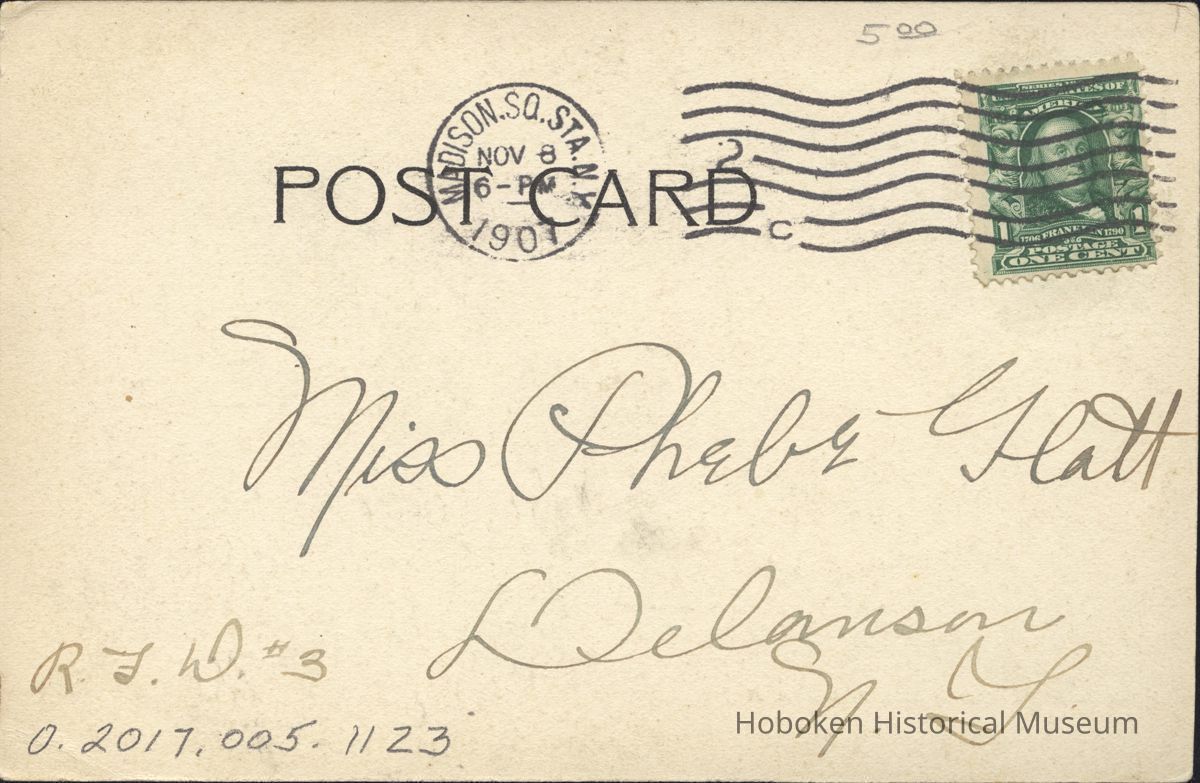 5 00
MADISON.SQ.STA.N.Y.
NOV 8
6-PM
1907
POST CARD
2
C
SERIES
STATES OF
AMERICA
1 1
1706 FRANKLIN 1790
POSTAGE
ONE CENT
Miss Phebe Glatt
Delanson
N. Y.
R. F. D. #3
O. 2017.005.1123
Hoboken Historical Museum